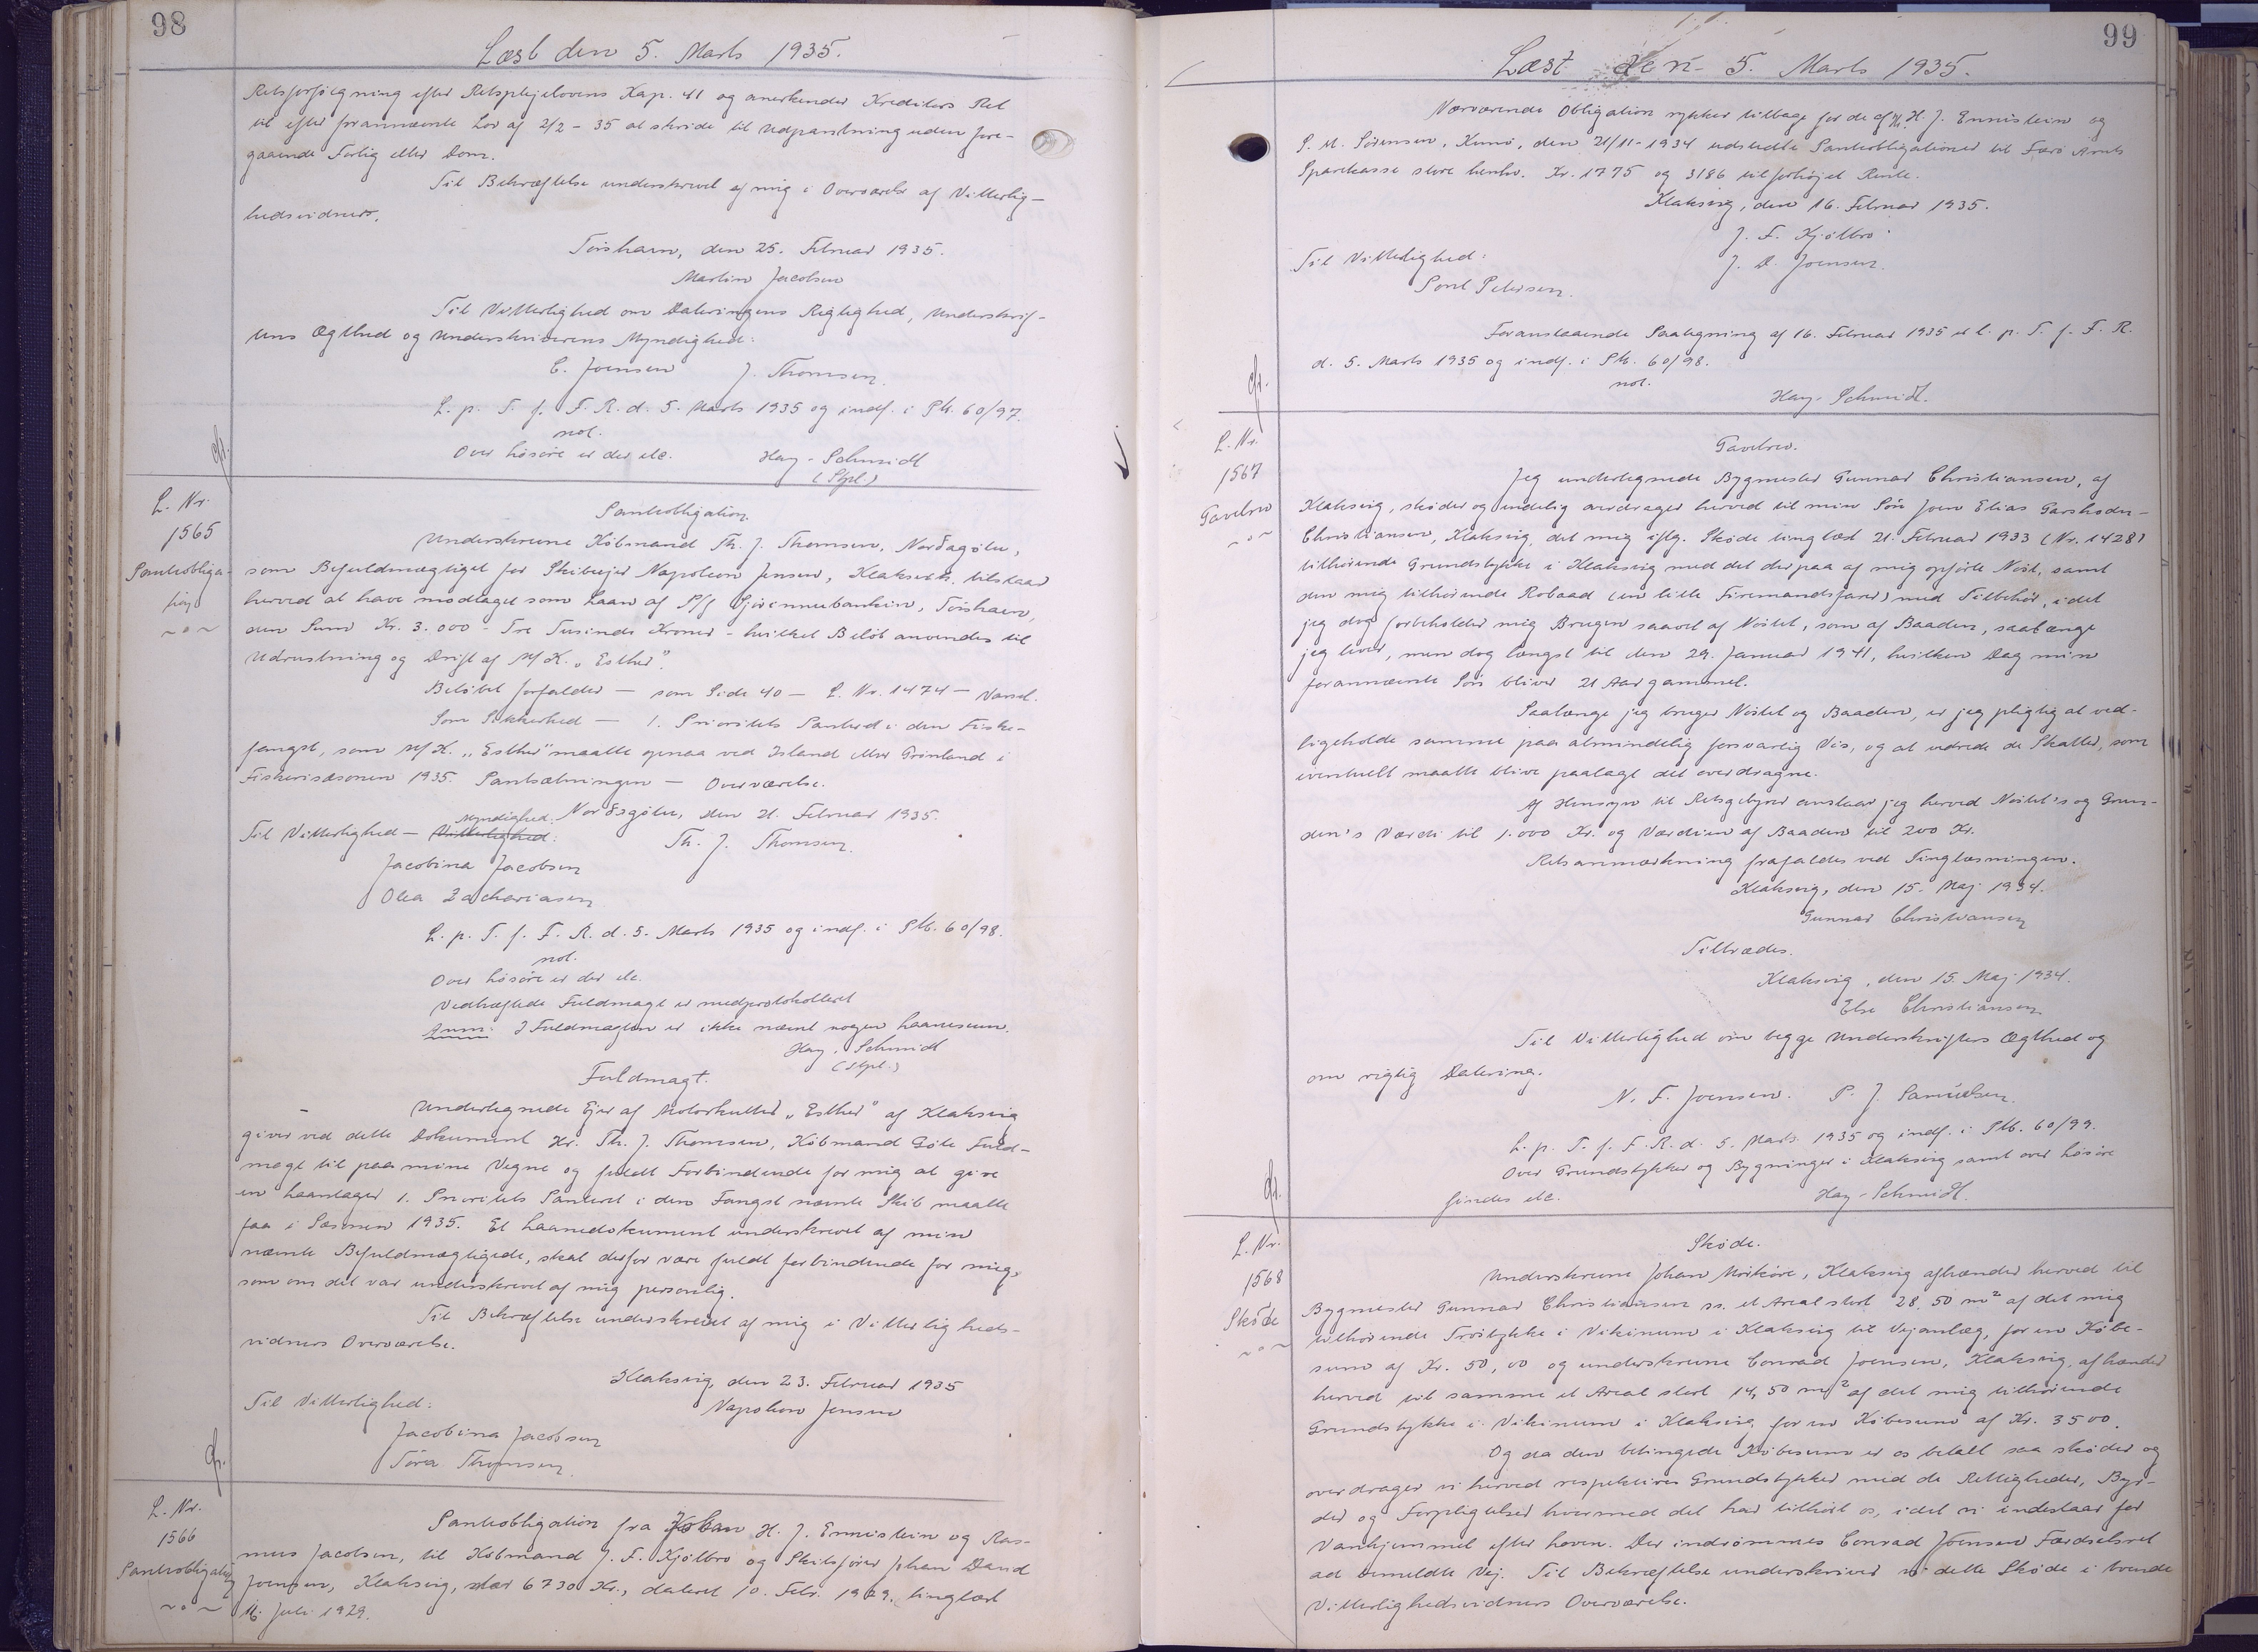 98
Læst den 5. Marts 1935.
Retsforfølgning efter Retsplejelovens Kap. 41 og anerkender Kreditors Ret
til efter forannævnte Lov af 2/2 - 35 at skride til Udpantning uden fore-
gaaende Forlig eller Dom.
Til Bekræftelse underskrevet af mig i Overværelse af Vitterlig-
hedsvidner.
Tórshavn, den 25. Februar 1935.
Martin Jacobsen
Til Vitterlighed om Dateringens Rigtighed, Underskrif-
tens Ægthed og Underskriverens Myndighed:
C. Joensen J. Thomsen.
L. p. T. f. F. R. d. 5. Marts 1935 og indf. i Pb. 60/97.
not.
Over løsøre er der etc. Hay-Schmidt
(Stpl.)
L. Nr.
1565
Pantobliga-
tion
~ o ~
Pantobligation.
Underskrevne Købmand Th. J. Thomsen, Norðagøtu,
som Befuldmægtiget for Skibsejer Napoleon Jensen, Klaksvik, tilstaar
herved at have modtaget som Laan af P/f Sjóvinnubankin, Tórshavn,
den Sum Kr. 3.000 - Tre Tusinde Kroner - hvilket Beløb anvendes til
Udrustning og Drift af M/K. „Esther".
Beløbet forfalder — som Side 40 — L. Nr. 1474 — Varsel.
Som Sikkerhed — 1. Prioritets Panteret i den Fiske-
fangst, som M/K. „Esther" maatte opnaa ved Island eller Grønland i
Fiskerisæsonen 1935. Pantsætningen — Overværelse.
Norðagøtu, den 21. Februar 1935.
Til Vitterlighed — Vitterlighed: Myndighed: Th. J. Thomsen.
Jacobina Jacobsen
Olea Zachariasen
L. p. T. f. F. R. d. 5. Marts 1935 og indf. i Pb. 60/98.
not.
Over løsøre er der etc.
Vedhæftede Fuldmagt er medprotokolleret
Anm: I Fuldmagten er ikke nævnt nogen Laanesum.
Hay-Schmidt
(Stpl.)
Fuldmagt.
Undertegnede Ejer af Motorkutter „Esther" af Klaksvig
giver ved dette Dokument Hr. Th. J. Thomsen, Købmand Gøte Fuld-
magt til paa mine Vegne og fuldt Forbindende for mig at give
en Laantager 1. Prioritets Panteret i den Fangst nævnte Skib maatte
faa i Sæsonen 1935. Et Laanedokument underskrevet af min
nævnte Befuldmægtigede, skal derfor være fuldt forbindende for mig,
som om det var underskrevet af mig personlig.
Til Bekræftelse underskrevet af mig i Vitterligheds-
vidners Overværelse.
Klaksvig, den 23. Februar 1935
Til Vitterlighed: Napoleon Jensen
Jacobina Jacobsen
Tóra Thomsen.
L. Nr.
1566
Pantobligation
~ o ~
Pantobligation fra Johan H. J. Ennistein og Ras-
mus Jacobsen, til Købmand J. F. Kjølbro og Skibsfører Johan David
Joensen, Klaksvig, stor 6730 Kr., dateret 10. Febr. 1929, tinglæst
16. Juli 1929.
99
Læst den 5. Marts 1935.
Nærværende Obligation rykker tilbage for de af H. J. Ennistein og
P. M. Sørensen, Kunø, den 21/11-1934 udstedte Pantobligationer til Færø Amts
Sparekasse store henhv. Kr. 1775 og 3186 til forhøjet Rente.
Klaksvig, den 16. Februar 1935.
J. F. Kjølbro
Til Vitterlighed: J. D. Joensen.
Poul Petersen.
Foranstaaende Paategning af 16. Februar 1935 er l. p. T. f. F. R.
d. 5. Marts 1935 og indf. i Pb. 60/98.
not.
Hay-Schmidt.
L. Nr.
1567
Gavebrev
~ o ~
Gavebrev.
Jeg undertegnede Bygmester Gunnar Christiansen, af
Klaksvig, skøder og endelig overdrager herved til min Søn Joen Elias Garshodn-
Christiansen, Klaksvig, det mig iflg. Skøde tinglæst 21. Februar 1933 (Nr. 1428)
tilhørende Grundstykke i Klaksvig med det derpaa af mig opførte Nøst, samt
den mig tilhørende Robaad (en lille Firemandsfarer) med Tilbehør, idet
jeg dog forbeholder mig Brugen saavel af Nøstet, som af Baaden, saalænge
jeg lever, men dog længst til den 29. Januar 1941, hvilken Dag min
forannævnte Søn bliver 21 Aar gammel.
Saalænge jeg bruger Nøstet og Baaden, er jeg pligtig at ved-
ligeholde samme paa almindelig forsvarlig Vis, og at udrede de Skatter, som
eventuelt maatte blive paalagt det overdragne.
Af Hensyn til Retsgebyrer anslaar jeg herved Nøstet's og Grun-
den's Værdi til 1.000 Kr. og Værdien af Baaden til 200 Kr.
Retsanmærkning frafaldes ved Tinglæsningen.
Klaksvig, den 15. Maj 1934.
Gunnar Christiansen
Tiltrædes.
Klaksvig, den 15. Maj 1934.
Else Christiansen
Til Vitterlighed om begge Underskrifters Ægthed og
om rigtig Datering.
N. F. Joensen. P. J. Samuelsen.
L. p. T. f. F. R. d. 5. Marts 1935 og indf. i Pb. 60/99.
Over Grundstykker og Bygninger i Klaksvig samt over løsøre
findes etc. Hay-Schmidt.
L. Nr.
1568
Skøde
~ o ~
Skøde.
Underskrevne Johan Mørkøre, Klaksvig afhænder herved til
Bygmester Gunnar Christiansen ss. et Areal stort 28,50 m² af det mig
tilhørende Trøstykke i Vikinum i Klaksvig til Vejanlæg, for en Købe-
sum af Kr. 50,00 og underskrevne Conrad Joensen, Klaksvig, afhænder
herved til samme et Areal stort 14,50 m² af det mig tilhørende
Grundstykke i Vikinum i Klaksvig for en Købesum af Kr. 3500.
Og da den betingede Købesum er os betalt saa skøder og
overdrager vi herved respektive Grundstykker med de Rettigheder, Byr-
der og Forpligtelser hvormed det har tilhørt os, idet vi indestaar for
Vanhjemmel efter Loven. Der indrømmes Conrad Joensen Færdselsret
ad anmeldte Vej. Til Bekræftelse underskriver vi dette Skøde i tvende
Vitterlighedsvidners Overværelse.